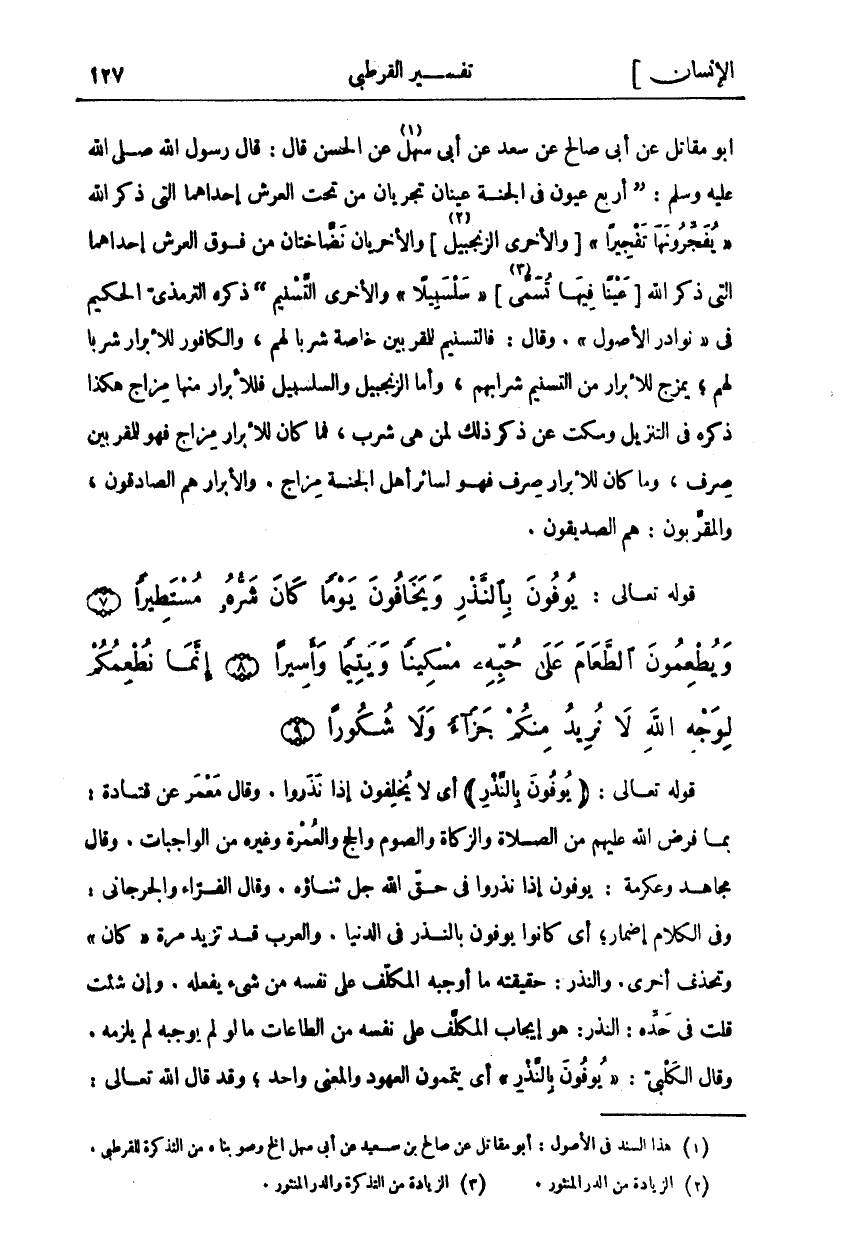 الإنسان ]
تفسير القرطبى
١٢٧
ابو مقاتل عن أبى صالح عن سعد عن أبى سهل (١) عن الحسن قال : قال رسول الله صلى الله
عليه وسلم : " أربع عيون فى الجنة عينان تجريان من تحت العرش إحداهما التى ذكر الله
« يُفَجِّرُونَهَا تَفْجِيرًا » [ والأخرى الزنجبيل (٢) ] والأخريان نَضَّاختان من فوق العرش إحداهما
التى ذكر الله [ عَيْنًا فِيهَا تُسَمَّى (٣) ] « سَلْسَبِيلًا » والأخرى التَّسْنيم " ذكره الترمذىّ الحكيم
فى « نوادر الأصول » . وقال : فالتسنيم للقربين خاصة شربا لهم ، والكافور للأبرار شربا
لهم ؛ يمزج للأبرار من التسنيم شرابهم ، وأما الزنجبيل والسلسبيل فللأبرار منها مِزاج هكذا
ذكره فى التنزيل وسكت عن ذكر ذلك لمن هى شرب ، فما كان للأبرار مِزاج فهو للقربين
صِرف ، وما كان للأبرار صِرف فهو لسائر أهل الجنة مِزاج . والأبرار هم الصادقون ،
والمقرَّبون : هم الصديقون .
قوله تعالى : يُوفُونَ بِٱلنَّذْرِ وَيَخَافُونَ يَوْمًا كَانَ شَرُّهُۥ مُسْتَطِيرًا ﴿٧﴾
وَيُطْعِمُونَ ٱلطَّعَامَ عَلَىٰ حُبِّهِۦ مِسْكِينًا وَيَتِيمًا وَأَسِيرًا ﴿٨﴾ إِنَّمَا نُطْعِمُكُمْ
لِوَجْهِ اللَّهِ لَا نُرِيدُ مِنكُمْ جَزَآءً وَلَا شُكُورًا ﴿٩﴾
قوله تعالى : ﴿ يُوفُونَ بِالنَّذْرِ ﴾ أى لا يُخلِفون إذا نَذَروا . وقال مَعْمَر عن قتادة :
بما فرض الله عليهم من الصلاة والزكاة والصوم والحج والعُمْرة وغيره من الواجبات . وقال
مجاهد وعكرمة : يوفون إذا نذروا فى حقّ الله جل ثناؤه . وقال الفرّاء والجرجانى :
وفى الكلام إضمار؛ أى كانوا يوفون بالنذر فى الدنيا . والعرب قد تزيد مرة « كان »
وتحذف أخرى . والنذر : حقيقته ما أوجبه المكلَّف على نفسه من شىء يفعله . وإن شئت
قلت فى حَدّه : النذر: هو إيجاب المكلَّف على نفسه من الطاعات ما لو لم يوجبه لم يلزمه .
وقال الكَلْبىّ : « يُوفُونَ بِالنَّذْرِ » أى يتممون العهود والمعنى واحد ؛ وقد قال الله تعالى :
(١) هذا السند فى الأصول : أبو مقاتل عن صالح بن سعيد عن أبى سهل الخ وصوبناه من التذكرة للقرطبى .
(٢) الزيادة من الدر المنثور .
(٣) الزيادة من التذكرة والدر المنثور .